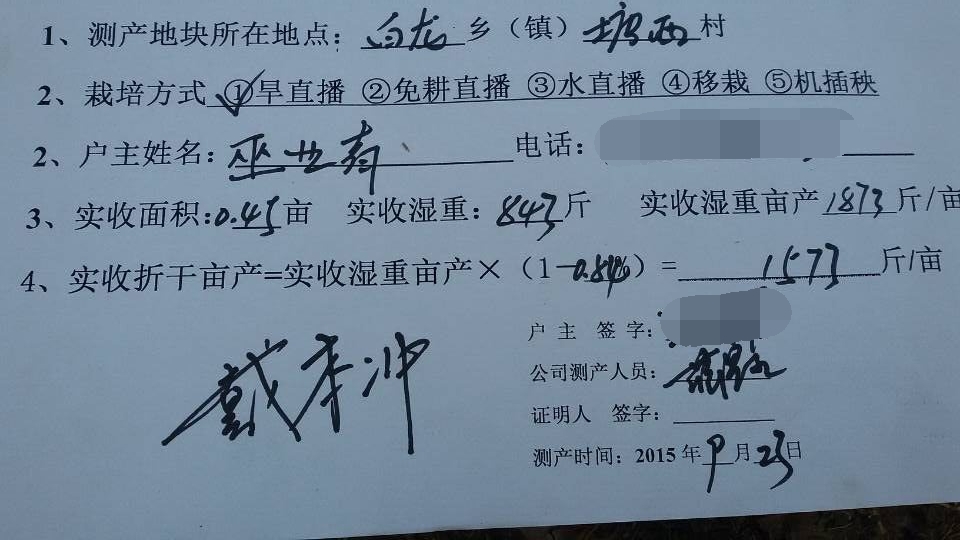 1、测产地块所在地点：白龙乡（镇）塘西村
2、栽培方式 ①旱直播 ②免耕直播 ③水直播 ④移栽 ⑤机插秧
2、户主姓名：巫世寿 电话：
3、实收面积：0.45亩 实收湿重：843斤 实收湿重亩产1873斤/亩
4、实收折干亩产=实收湿重亩产×（1-）=1573斤/亩
户 主 签 字：
戴李冲
公司测产人员：
证明人 签字：
测产时间：2015年9月23日